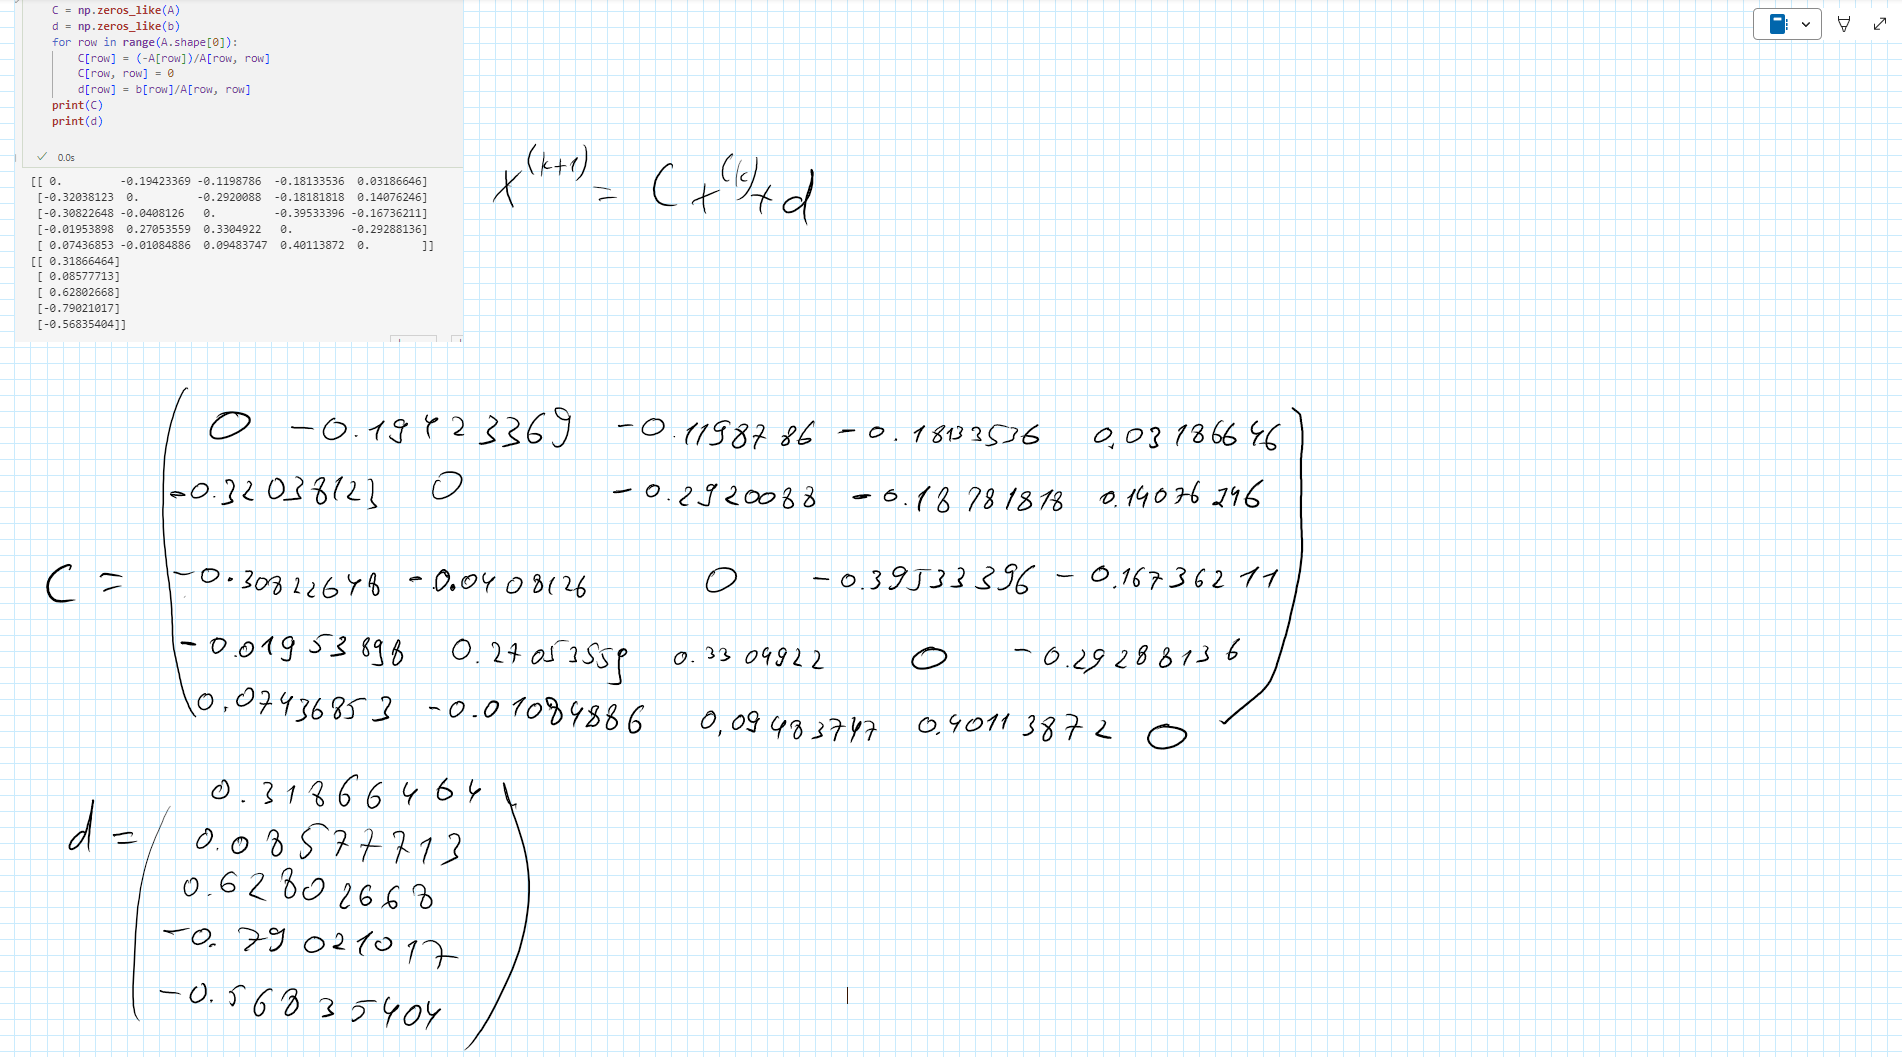 C = np.zeros_like(A)
d = np.zeros_like(b)
for row in range(A.shape[0]):
C[row] = (-A[row])/A[row, row]
C[row, row] = 0
d[row] = b[row]/A[row, row]
print(C)
print(d)
0.0s
[[ 0. -0.19423369 -0.1198786 -0.18133536 0.03186646]
[-0.32038123 0. -0.2920088 -0.18181818 0.14076246]
[-0.30822648 -0.0408126 0. -0.39533396 -0.16736211]
[-0.01953898 0.27053559 0.3304922 0. -0.29288136]
[ 0.07436853 -0.01084886 0.09483747 0.40113872 0. ]]
[[ 0.31866464]
[ 0.08577713]
[ 0.62802668]
[-0.79021017]
[-0.56835404]]
x^(k+1) = C x^(k) + d
0 -0.19423369 -0.1198786 -0.18133536 0,03186646
-0.32038123 0 -0.2920088 -0.18781818 0.14076246
C = -0.30822648 -0.0408126 0 -0.39533396 -0.16736211
-0.01953898 0.27053559 0.3304922 0 -0.29288136
0,07436853 -0.01084886 0,09483747 0.40113872 0
0.31866464
d = 0.08577713
0.62802668
-0.79021017
-0.56835404